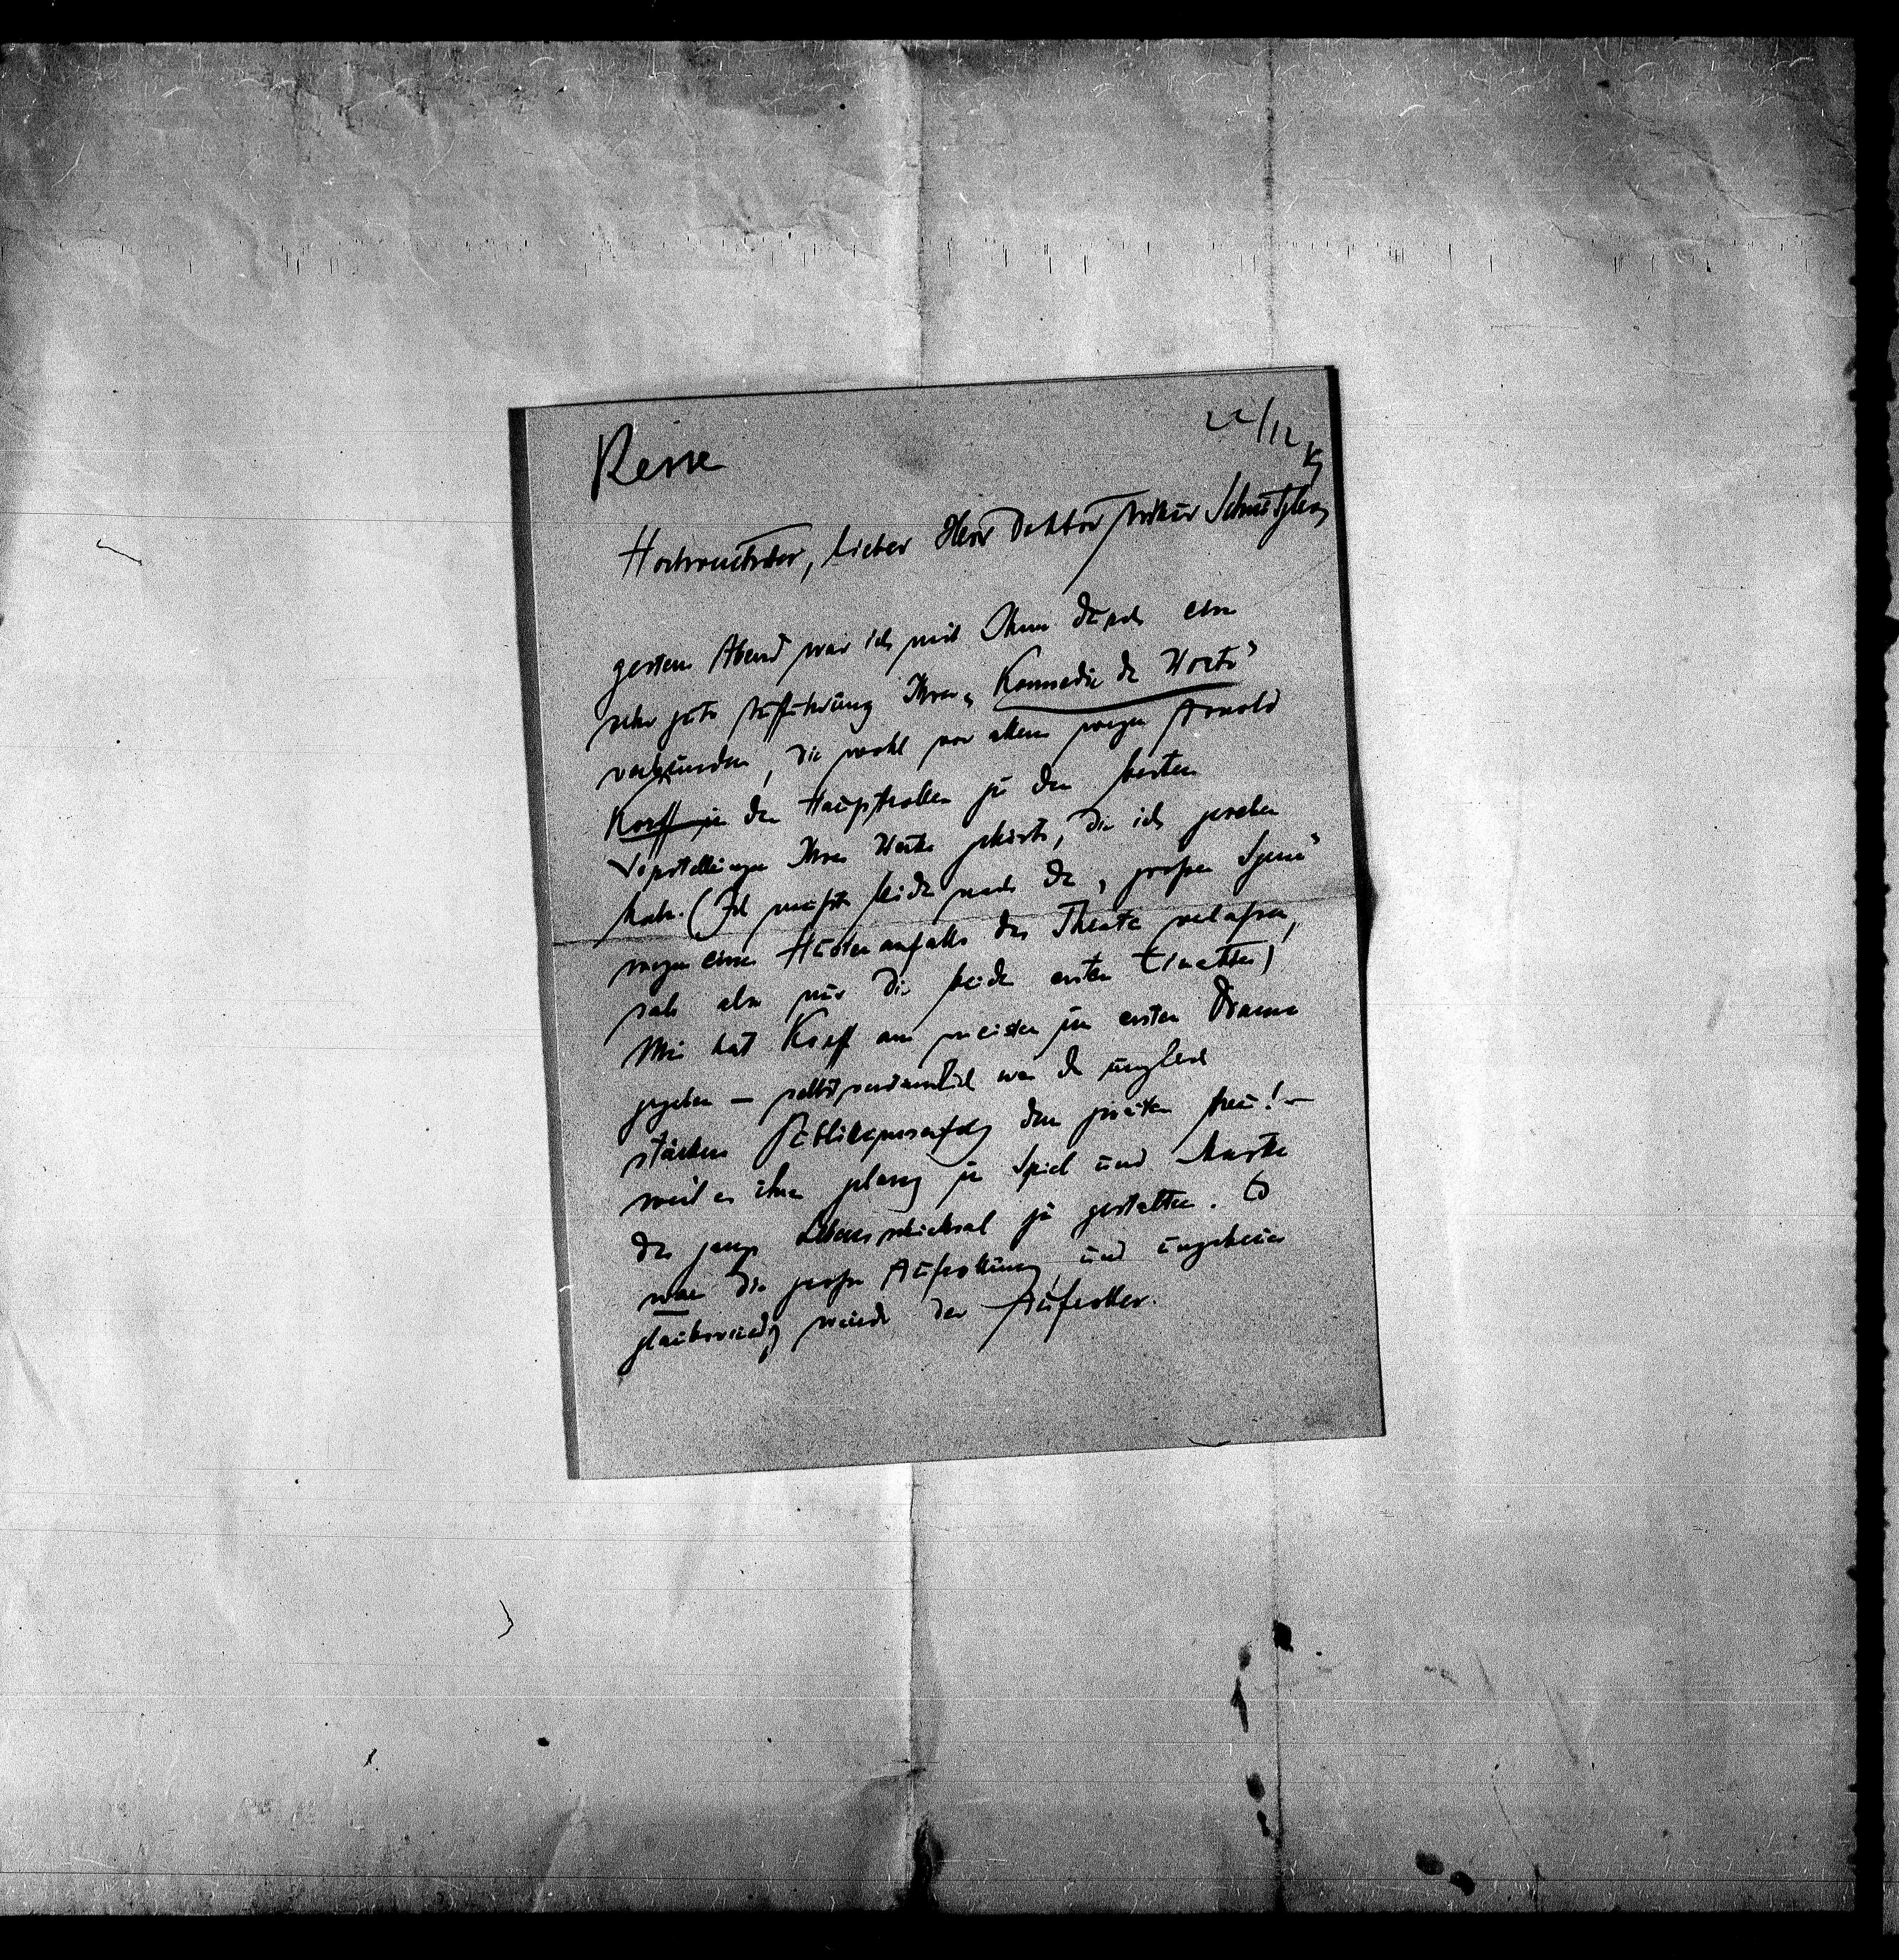 Reisse
22/12 15
Hochverehrter, lieber Herr Doktor Arthur Schnitzler,
gestern Abend war ich mit Ihnen durch eine
sehr gute Aufführung Ihrer „Komödie der Worte“
verbunden, die wohl vor allem wegen Arnold
Korff in den Hauptrollen zu den besten
Vorstellungen Ihrer Werke gehörte, die ich gesehen
habe. (Ich mußte leider nach der „großen Szene“
wegen eines Hustenanfalls das Theater verlassen,
sah also nur die beiden ersten Einakter)
Mir hat Korff am meisten im ersten Drama
gegeben — selbstverständlich war der ungleich
stärkere Publikumserfolg dem zweiten treu! —
weil es ihm gelang in Spiel und Maske
das ganze Lebensschicksal zu gestalten. Es
war die große Aufrollung und ungeheuer
glaubwürdig wurde der Aufroller.